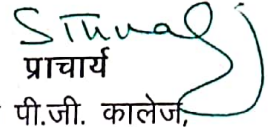 प्राचार्य
पी.जी. कालेज,